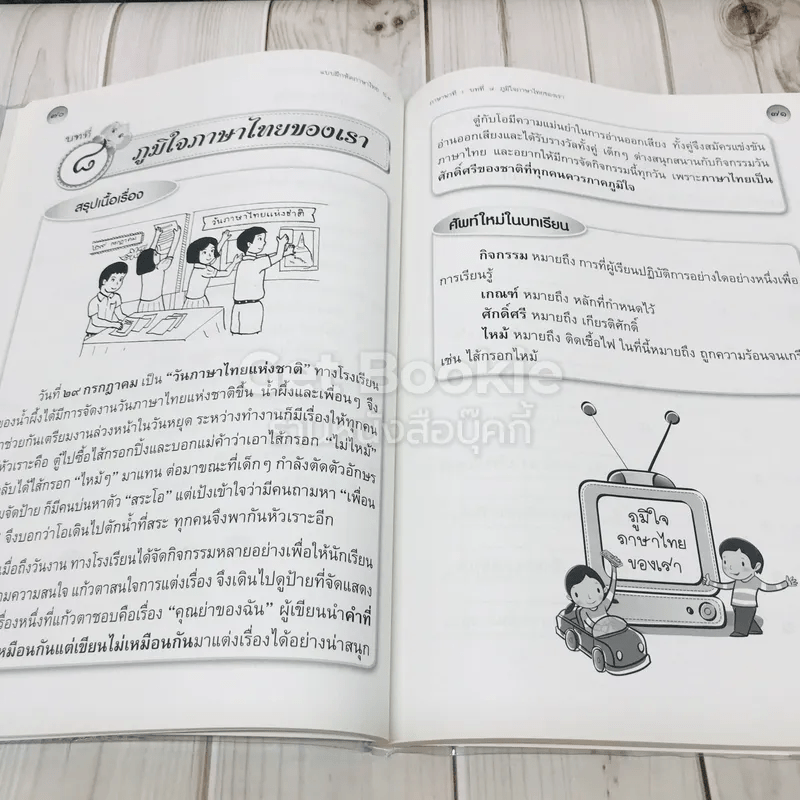 แบบฝึกหัดภาษาไทย ป.๔
บทที่
๘
ภูมิใจภาษาไทยของเรา
สรุปเนื้อเรื่อง
วันภาษาไทยแห่งชาติ
๒๙ กรกฎาคม
วันที่ ๒๙ กรกฎาคม เป็น “วันภาษาไทยแห่งชาติ” ทางโรงเรียน
ของน้ำผึ้งได้มีการจัดงานวันภาษาไทยแห่งชาติขึ้น น้ำผึ้งและเพื่อนๆ จึง
าช่วยกันเตรียมงานล่วงหน้าในวันหยุด ระหว่างทำงานก็มีเรื่องให้ทุกคน
หัวเราะคือ ตู๋ไปซื้อไส้กรอกปิ้งและบอกแม่ค้าว่าเอาไส้กรอก “ไม่ไหม้”
ลับได้ไส้กรอก “ไหม้ๆ” มาแทน ต่อมาขณะที่เด็กๆ กำลังตัดตัวอักษร
มจัดป้าย ก็มีคนบ่นหาตัว “สระโอ” แต่เป้งเข้าใจว่ามีคนถามหา “เพื่อน
จึงบอกว่าโอเดินไปตักน้ำที่สระ ทุกคนจึงพากันหัวเราะอีก
เมื่อถึงวันงาน ทางโรงเรียนได้จัดกิจกรรมหลายอย่างเพื่อให้นักเรียน
ามความสนใจ แก้วตาสนใจการแต่งเรื่อง จึงเดินไปดูป้ายที่จัดแสดง
รื่องหนึ่งที่แก้วตาชอบคือเรื่อง “คุณย่าของฉัน” ผู้เขียนนำคำที่
หมือนกันแต่เขียนไม่เหมือนกันมาแต่งเรื่องได้อย่างน่าสนุก
ภาษาพาที : บทที่ ๘ ภูมิใจภาษาไทยของเรา
๗๑
ตู๋กับโอมีความแม่นยำในการอ่านออกเสียง ทั้งคู่จึงสมัครแข่งขัน
อ่านออกเสียงและได้รับรางวัลทั้งคู่ เด็กๆ ต่างสนุกสนานกับกิจกรรมวัน
ภาษาไทย และอยากให้มีการจัดกิจกรรมนี้ทุกวัน เพราะภาษาไทยเป็น
ศักดิ์ศรีของชาติที่ทุกคนควรภาคภูมิใจ
ศัพท์ใหม่ในบทเรียน
กิจกรรม หมายถึง การที่ผู้เรียนปฏิบัติการอย่างใดอย่างหนึ่งเพื่อ
การเรียนรู้
เกณฑ์ หมายถึง หลักที่กำหนดไว้
ศักดิ์ศรี หมายถึง เกียรติศักดิ์
ไหม้ หมายถึง ติดเชื้อไฟ ในที่นี้หมายถึง ถูกความร้อนจนเกรี
เช่น ไส้กรอกไหม้
ภูมิใจ
ภาษาไทย
ของเรา
Get Bookie
ร้านหนังสือบุ๊คกี้